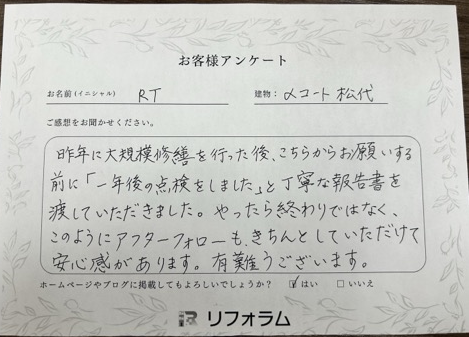 お客様アンケート
お名前(イニシャル) RT 建物: メコート松代
ご感想をお聞かせください。
昨年に大規模修繕を行った後、こちらからお願いする
前に「一年後の点検をしました」と丁寧な報告書を
渡していただきました。やったら終わりではなく、
このようにアフターフォローも、きちんとしていただけて
安心感があります。有難うございます。
ホームページやブログに掲載してもよろしいでしょうか? ☑はい □いいえ
リフォラム